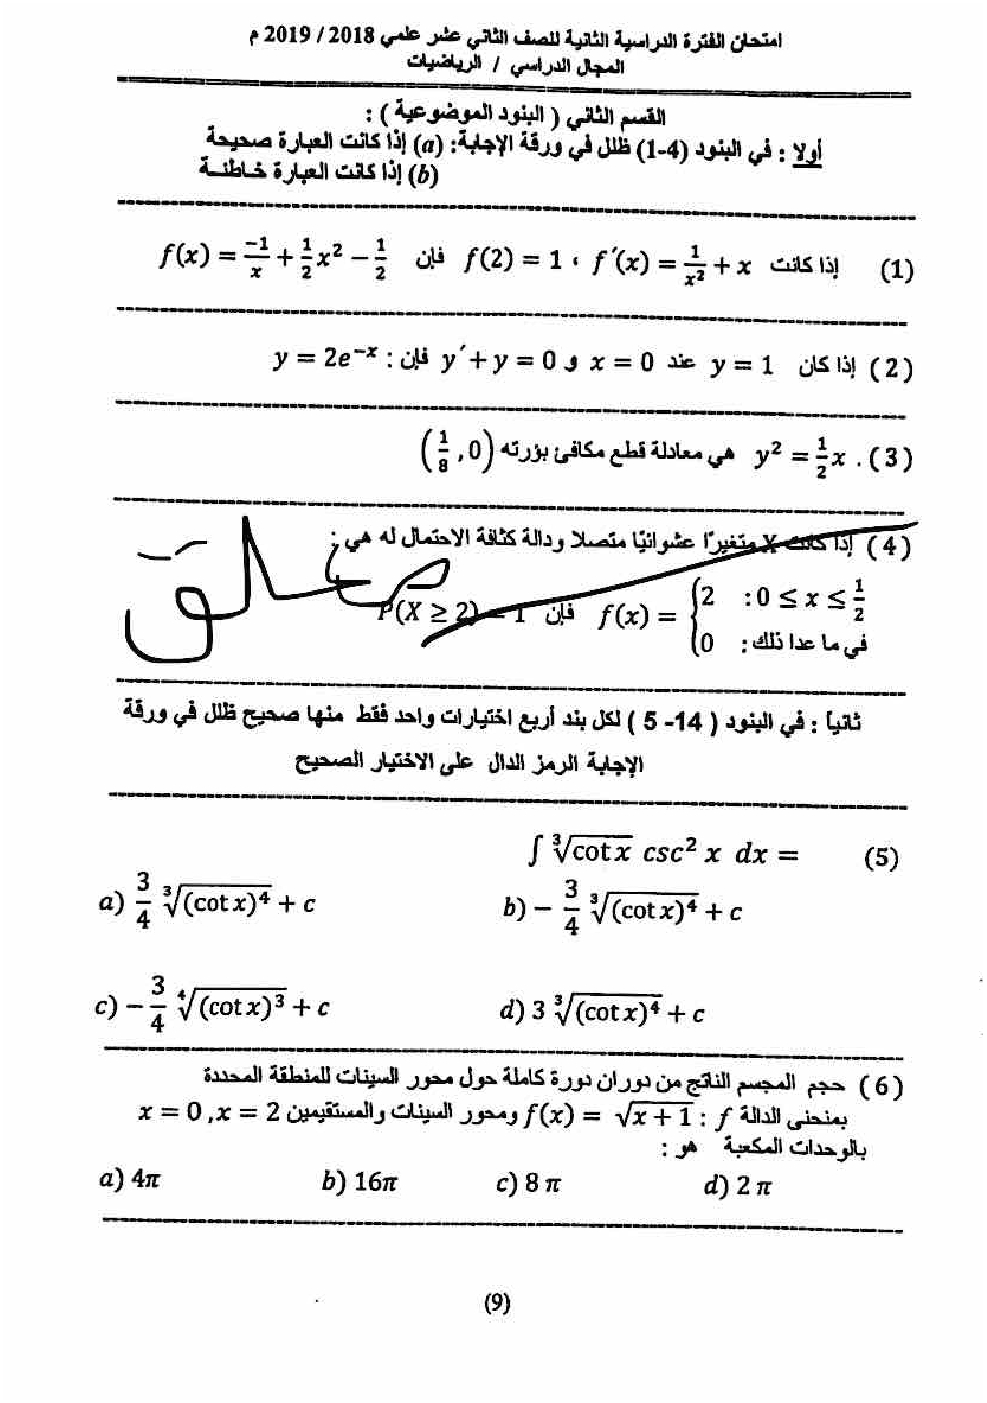 امتحان الفترة الدراسية الثانية للصف الثاني عشر علمي 2018 / 2019 م
المجال الدراسي / الرياضيات
القسم الثاني ( البنود الموضوعية ) :
أولا : في البنود (4-1) ظلل في ورقة الإجابة: (a) إذا كانت العبارة صحيحة
(b) إذا كانت العبارة خاطئة
(1) إذا كانت f′(x) = 1/x² + x ، f(2) = 1 فإن f(x) = −1/x + 1/2 x² − 1/2
(2) إذا كان y = 1 عند x = 0 و y′ + y = 0 فإن : y = 2e⁻ˣ
(3) . y² = 1/2 x هي معادلة قطع مكافئ بؤرته (1/8 , 0)
(4) إذا كانت X متغيرًا عشوائيًا متصلا ودالة كثافة الاحتمال له هي :
f(x) = { 2 : 0 ≤ x ≤ 1/2
0 : في ما عدا ذلك
فإن P(X ≥ 2) = 1
ثانياً : في البنود ( 14- 5 ) لكل بند أربع اختيارات واحد فقط منها صحيح ظلل في ورقة
الإجابة الرمز الدال على الاختيار الصحيح
(5) ∫ ∛cot x csc² x dx =
a) 3/4 ∛(cot x)⁴ + c b) − 3/4 ∛(cot x)⁴ + c
c) − 3/4 ∜(cot x)³ + c d) 3 ∛(cot x)⁴ + c
(6) حجم المجسم الناتج من دوران دورة كاملة حول محور السينات للمنطقة المحددة
بمنحنى الدالة f : f(x) = √x + 1 ومحور السينات والمستقيمين x = 0 , x = 2
بالوحدات المكعبة هو :
a) 4π b) 16π c) 8 π d) 2 π
(9)